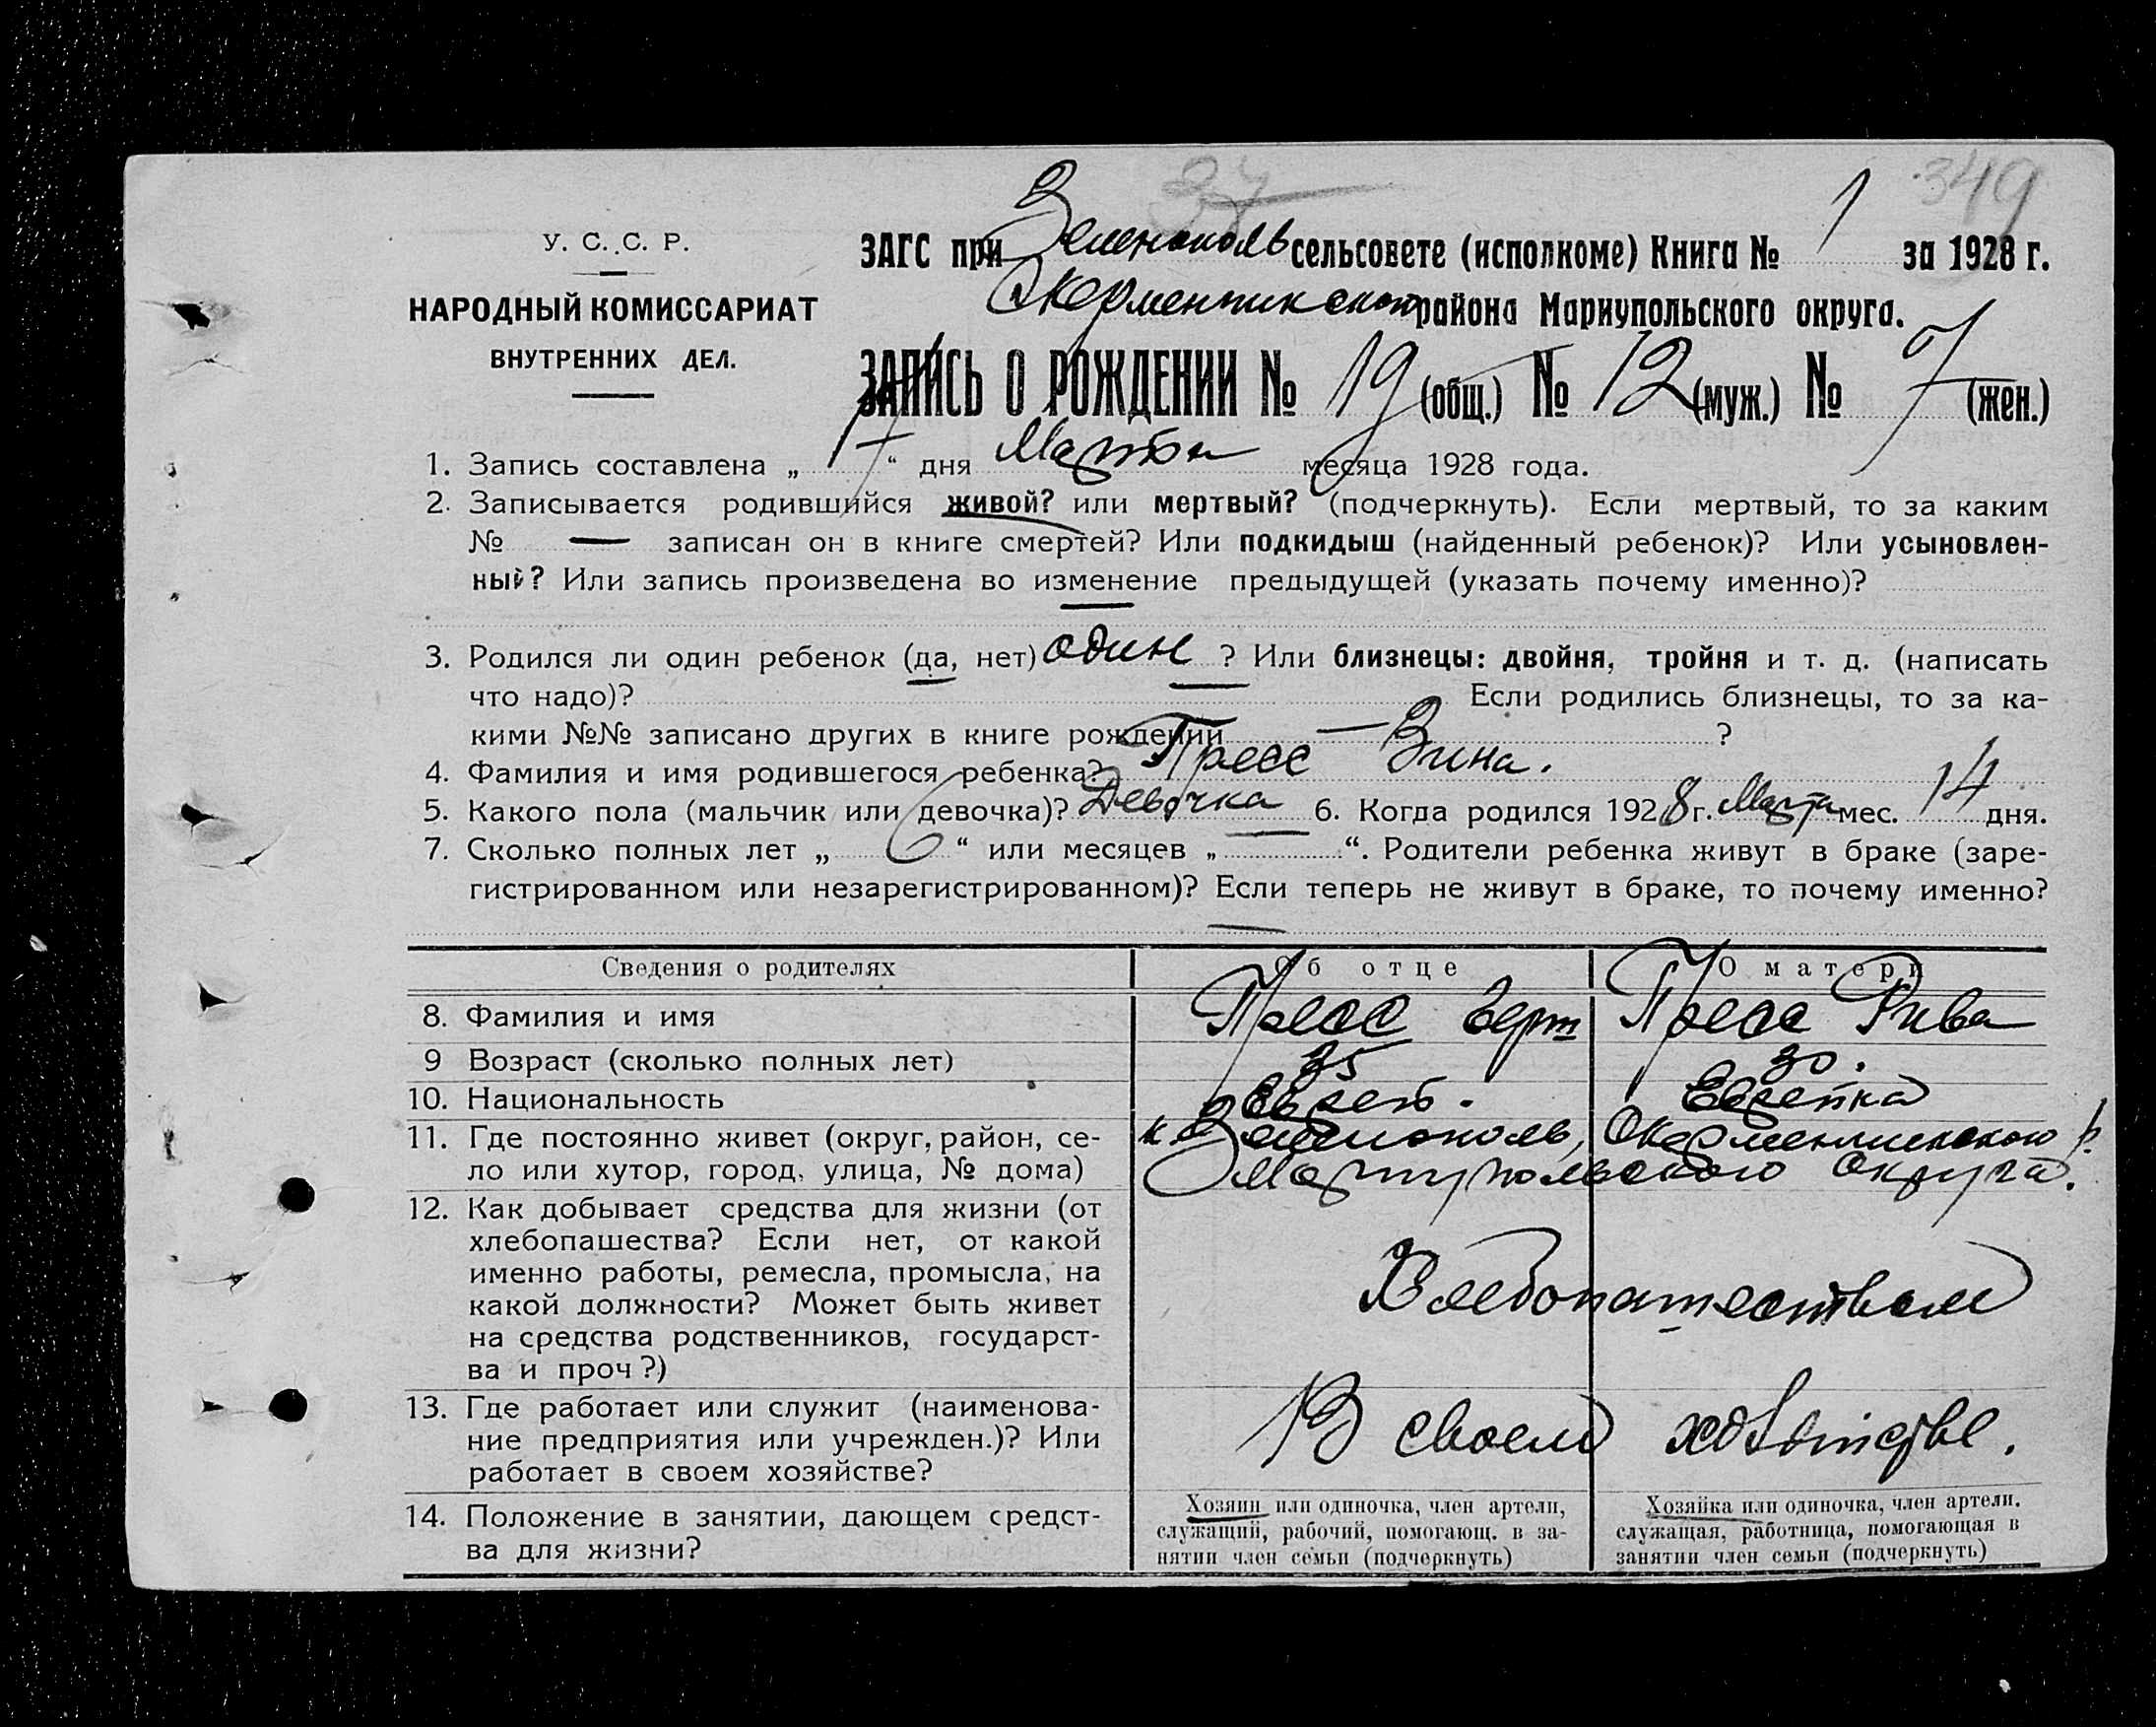 37 349
У. С. С. Р.
НАРОДНЫЙ КОМИССАРИАТ
ВНУТРЕННИХ ДЕЛ.
ЗАГС при Зеленополь сельсовете (исполкоме) Книга № 1 за 1928 г.
Керменчикского района Мариупольского округа.
ЗАПИСЬ О РОЖДЕНИИ № 19 (общ.) № 12 (муж.) № 7 (жен.)
1. Запись составлена „ 17 “ дня Марта месяца 1928 года.
2. Записывается родившийся живой? или мертвый? (подчеркнуть). Если мертвый, то за каким
№ — записан он в книге смертей? Или подкидыш (найденный ребенок)? Или усыновлен-
ный? Или запись произведена во изменение предыдущей (указать почему именно)?
—
3. Родился ли один ребенок (да, нет) один ? Или близнецы: двойня, тройня и т. д. (написать
что надо)? — Если родились близнецы, то за ка-
кими №№ записано других в книге рождений — ?
4. Фамилия и имя родившегося ребенка? Пресс Зина.
5. Какого пола (мальчик или девочка)? Девочка 6. Когда родился 1928 г. Марта мес. 14 дня.
7. Сколько полных лет „ 6 “ или месяцев „ — “. Родители ребенка живут в браке (заре-
гистрированном или незарегистрированном)? Если теперь не живут в браке, то почему именно?
—
Сведения о родителях Об отце О матери
8. Фамилия и имя Пресс Берт Пресс Рива
9 Возраст (сколько полных лет) 35 30.
10. Национальность Еврей. Еврейка
11. Где постоянно живет (округ, район, се- к. Зеленополь, Керменчикского р.
ло или хутор, город, улица, № дома) Мариупольского округа.
12. Как добывает средства для жизни (от
хлебопашества? Если нет, от какой
именно работы, ремесла, промысла, на
какой должности? Может быть живет Хлебопашеством
на средства родственников, государст-
ва и проч?)
13. Где работает или служит (наименова-
ние предприятия или учрежден.)? Или В своем хозяйстве.
работает в своем хозяйстве?
14. Положение в занятии, дающем средст-
ва для жизни?
Хозяин или одиночка, член артели,
служащий, рабочий, помогающ. в за-
нятии член семьи (подчеркнуть)
Хозяйка или одиночка, член артели.
служащая, работница, помогающая в
занятии член семьи (подчеркнуть)